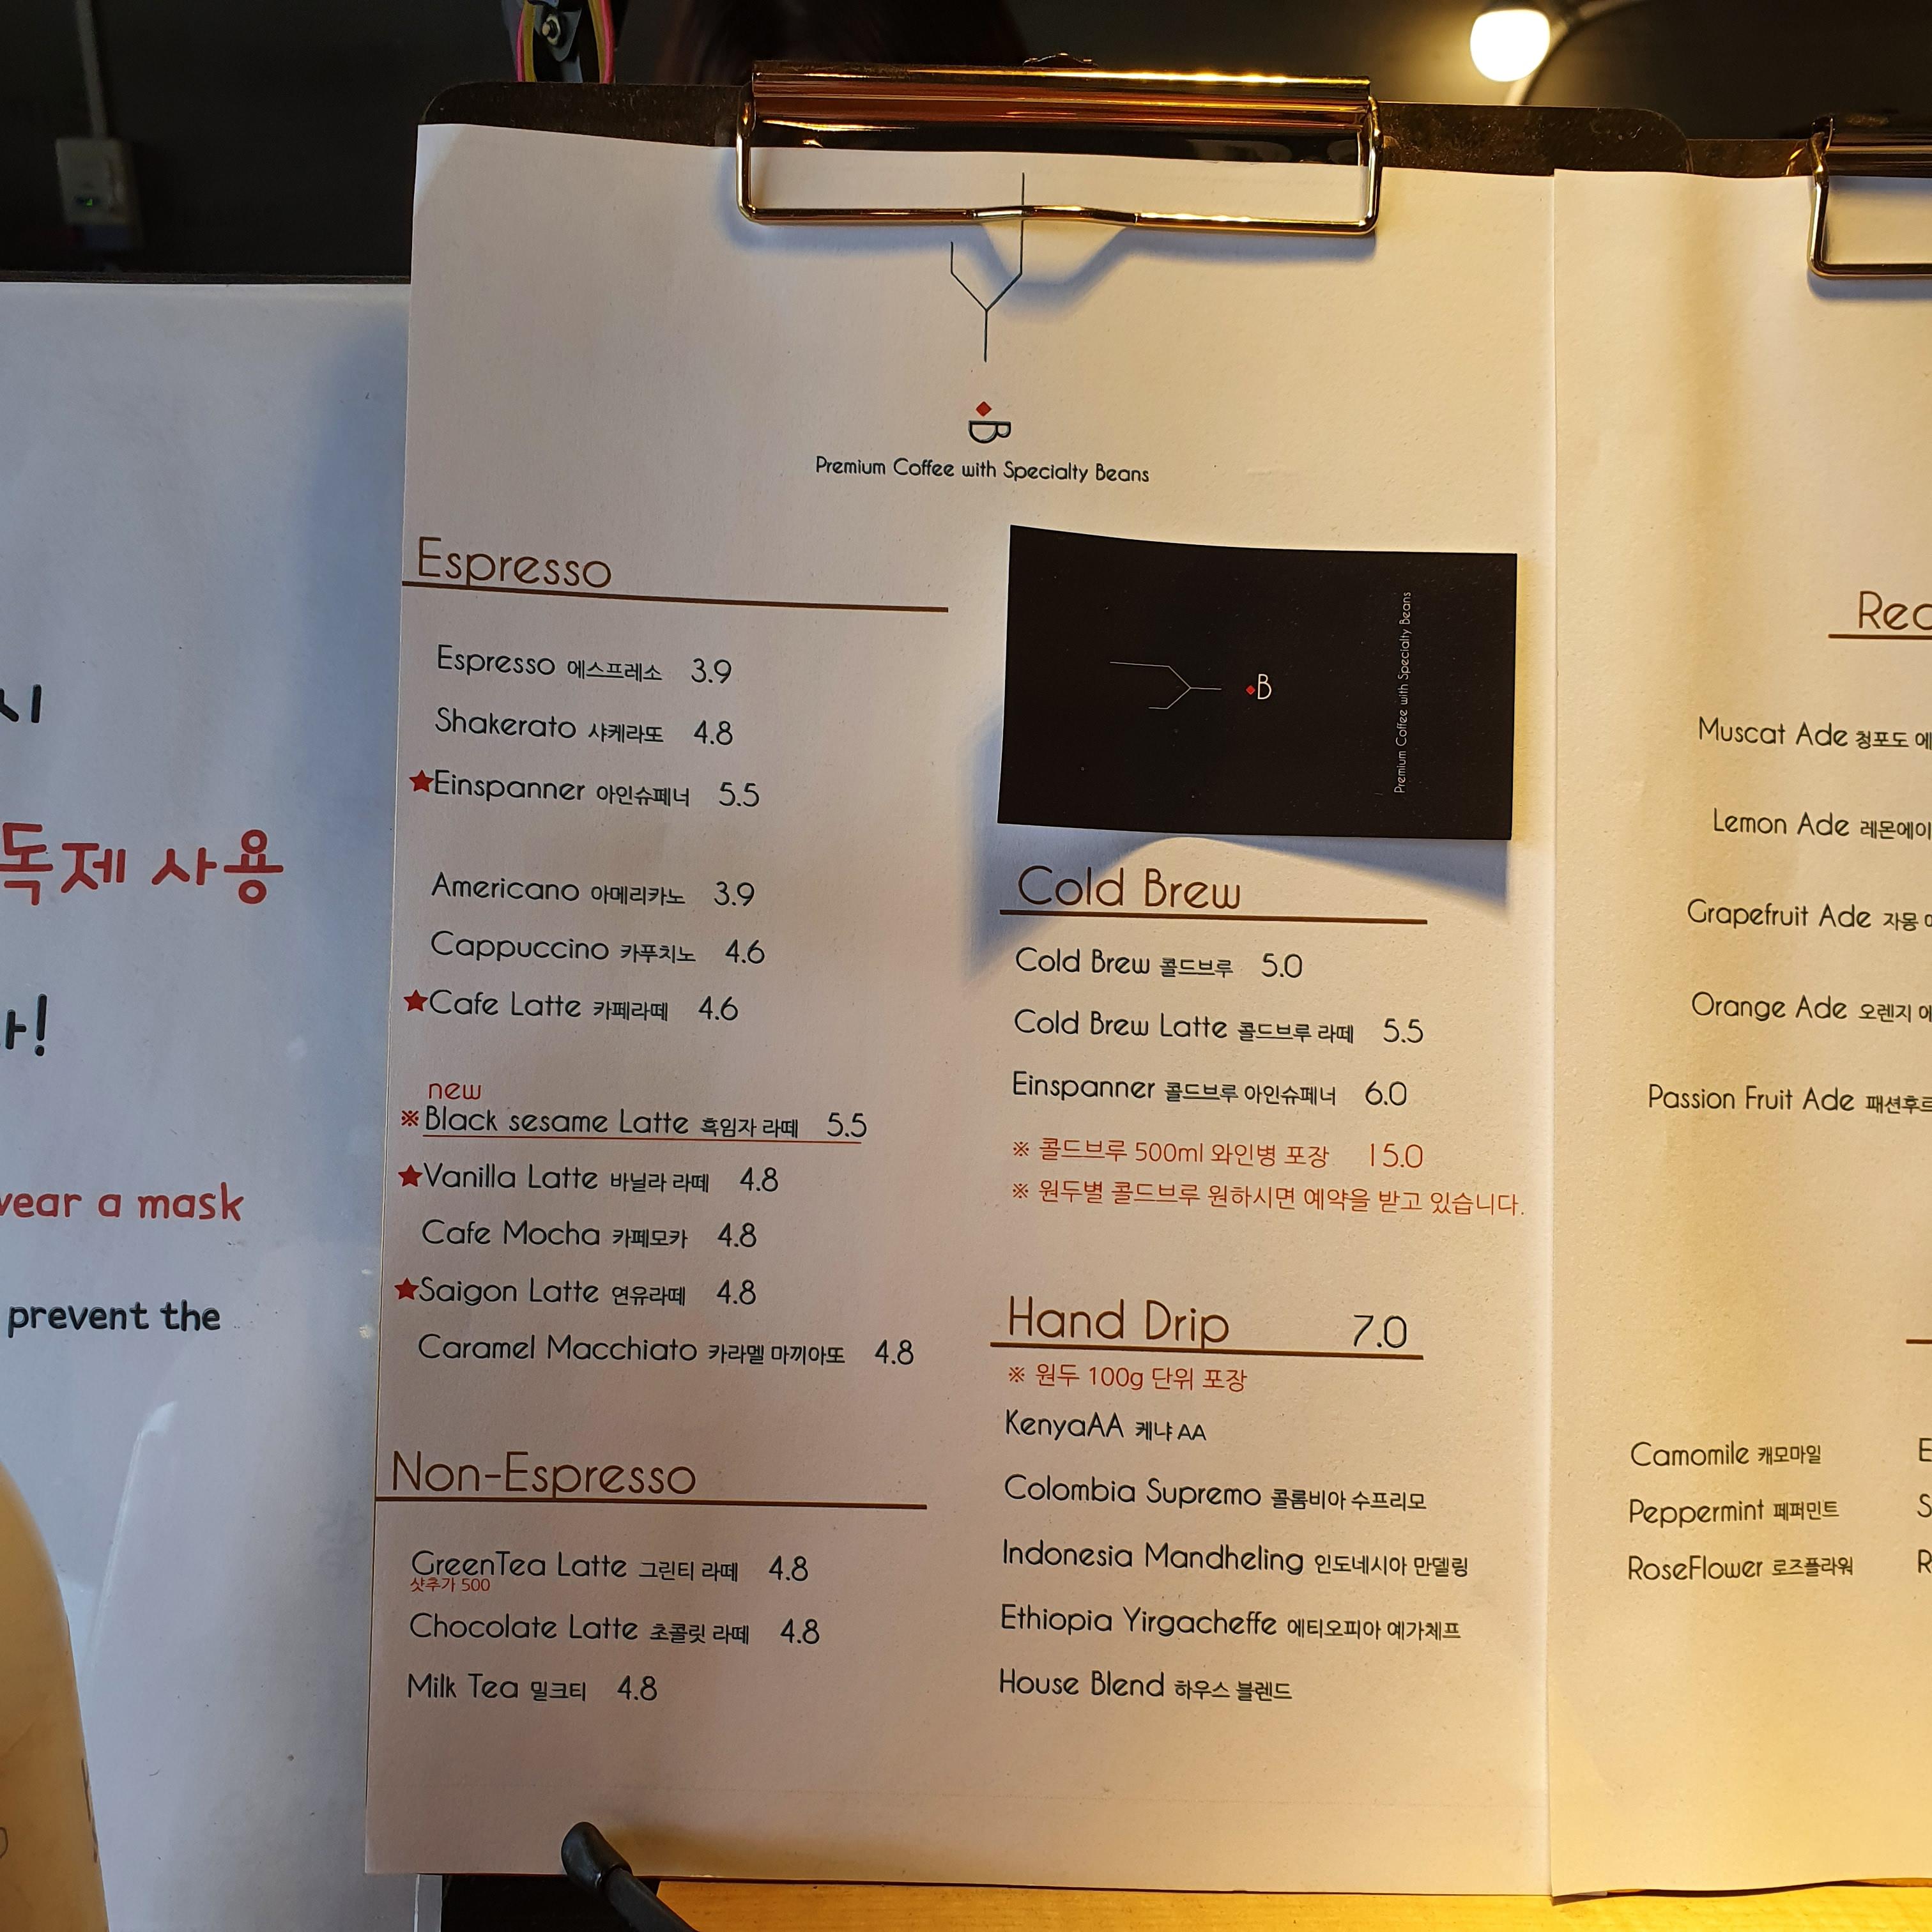 시
독제 사용
!
wear a mask
prevent the
B
Premium Coffee with Specialty Beans
Espresso
Espresso 에스프레소 3.9
Shakerato 샤케라또 4.8
★Einspanner 아인슈페너 5.5
Americano 아메리카노 3.9
Cappuccino 카푸치노 4.6
★Cafe Latte 카페라떼 4.6
new
※Black sesame Latte 흑임자 라떼 5.5
★Vanilla Latte 바닐라 라떼 4.8
Cafe Mocha 카페모카 4.8
★Saigon Latte 연유라떼 4.8
Caramel Macchiato 카라멜 마끼아또 4.8
Non-Espresso
GreenTea Latte 그린티 라떼 4.8
샷추가 500
Chocolate Latte 초콜릿 라떼 4.8
Milk Tea 밀크티 4.8
B
Premium Coffee with Specialty Beans
Cold Brew
Cold Brew 콜드브루 5.0
Cold Brew Latte 콜드브루 라떼 5.5
Einspanner 콜드브루 아인슈페너 6.0
※ 콜드브루 500ml 와인병 포장 15.0
※ 원두별 콜드브루 원하시면 예약을 받고 있습니다.
Hand Drip 7.0
※ 원두 100g 단위 포장
KenyaAA 케냐 AA
Colombia Supremo 콜롬비아 수프리모
Indonesia Mandheling 인도네시아 만델링
Ethiopia Yirgacheffe 에티오피아 예가체프
House Blend 하우스 블렌드
Muscat Ade 청포도 에
Lemon Ade 레몬에이
Grapefruit Ade 자몽
Orange Ade 오렌지 에
Passion Fruit Ade 패션후르
Camomile 캐모마일
Peppermint 페퍼민트
RoseFlower 로즈플라워